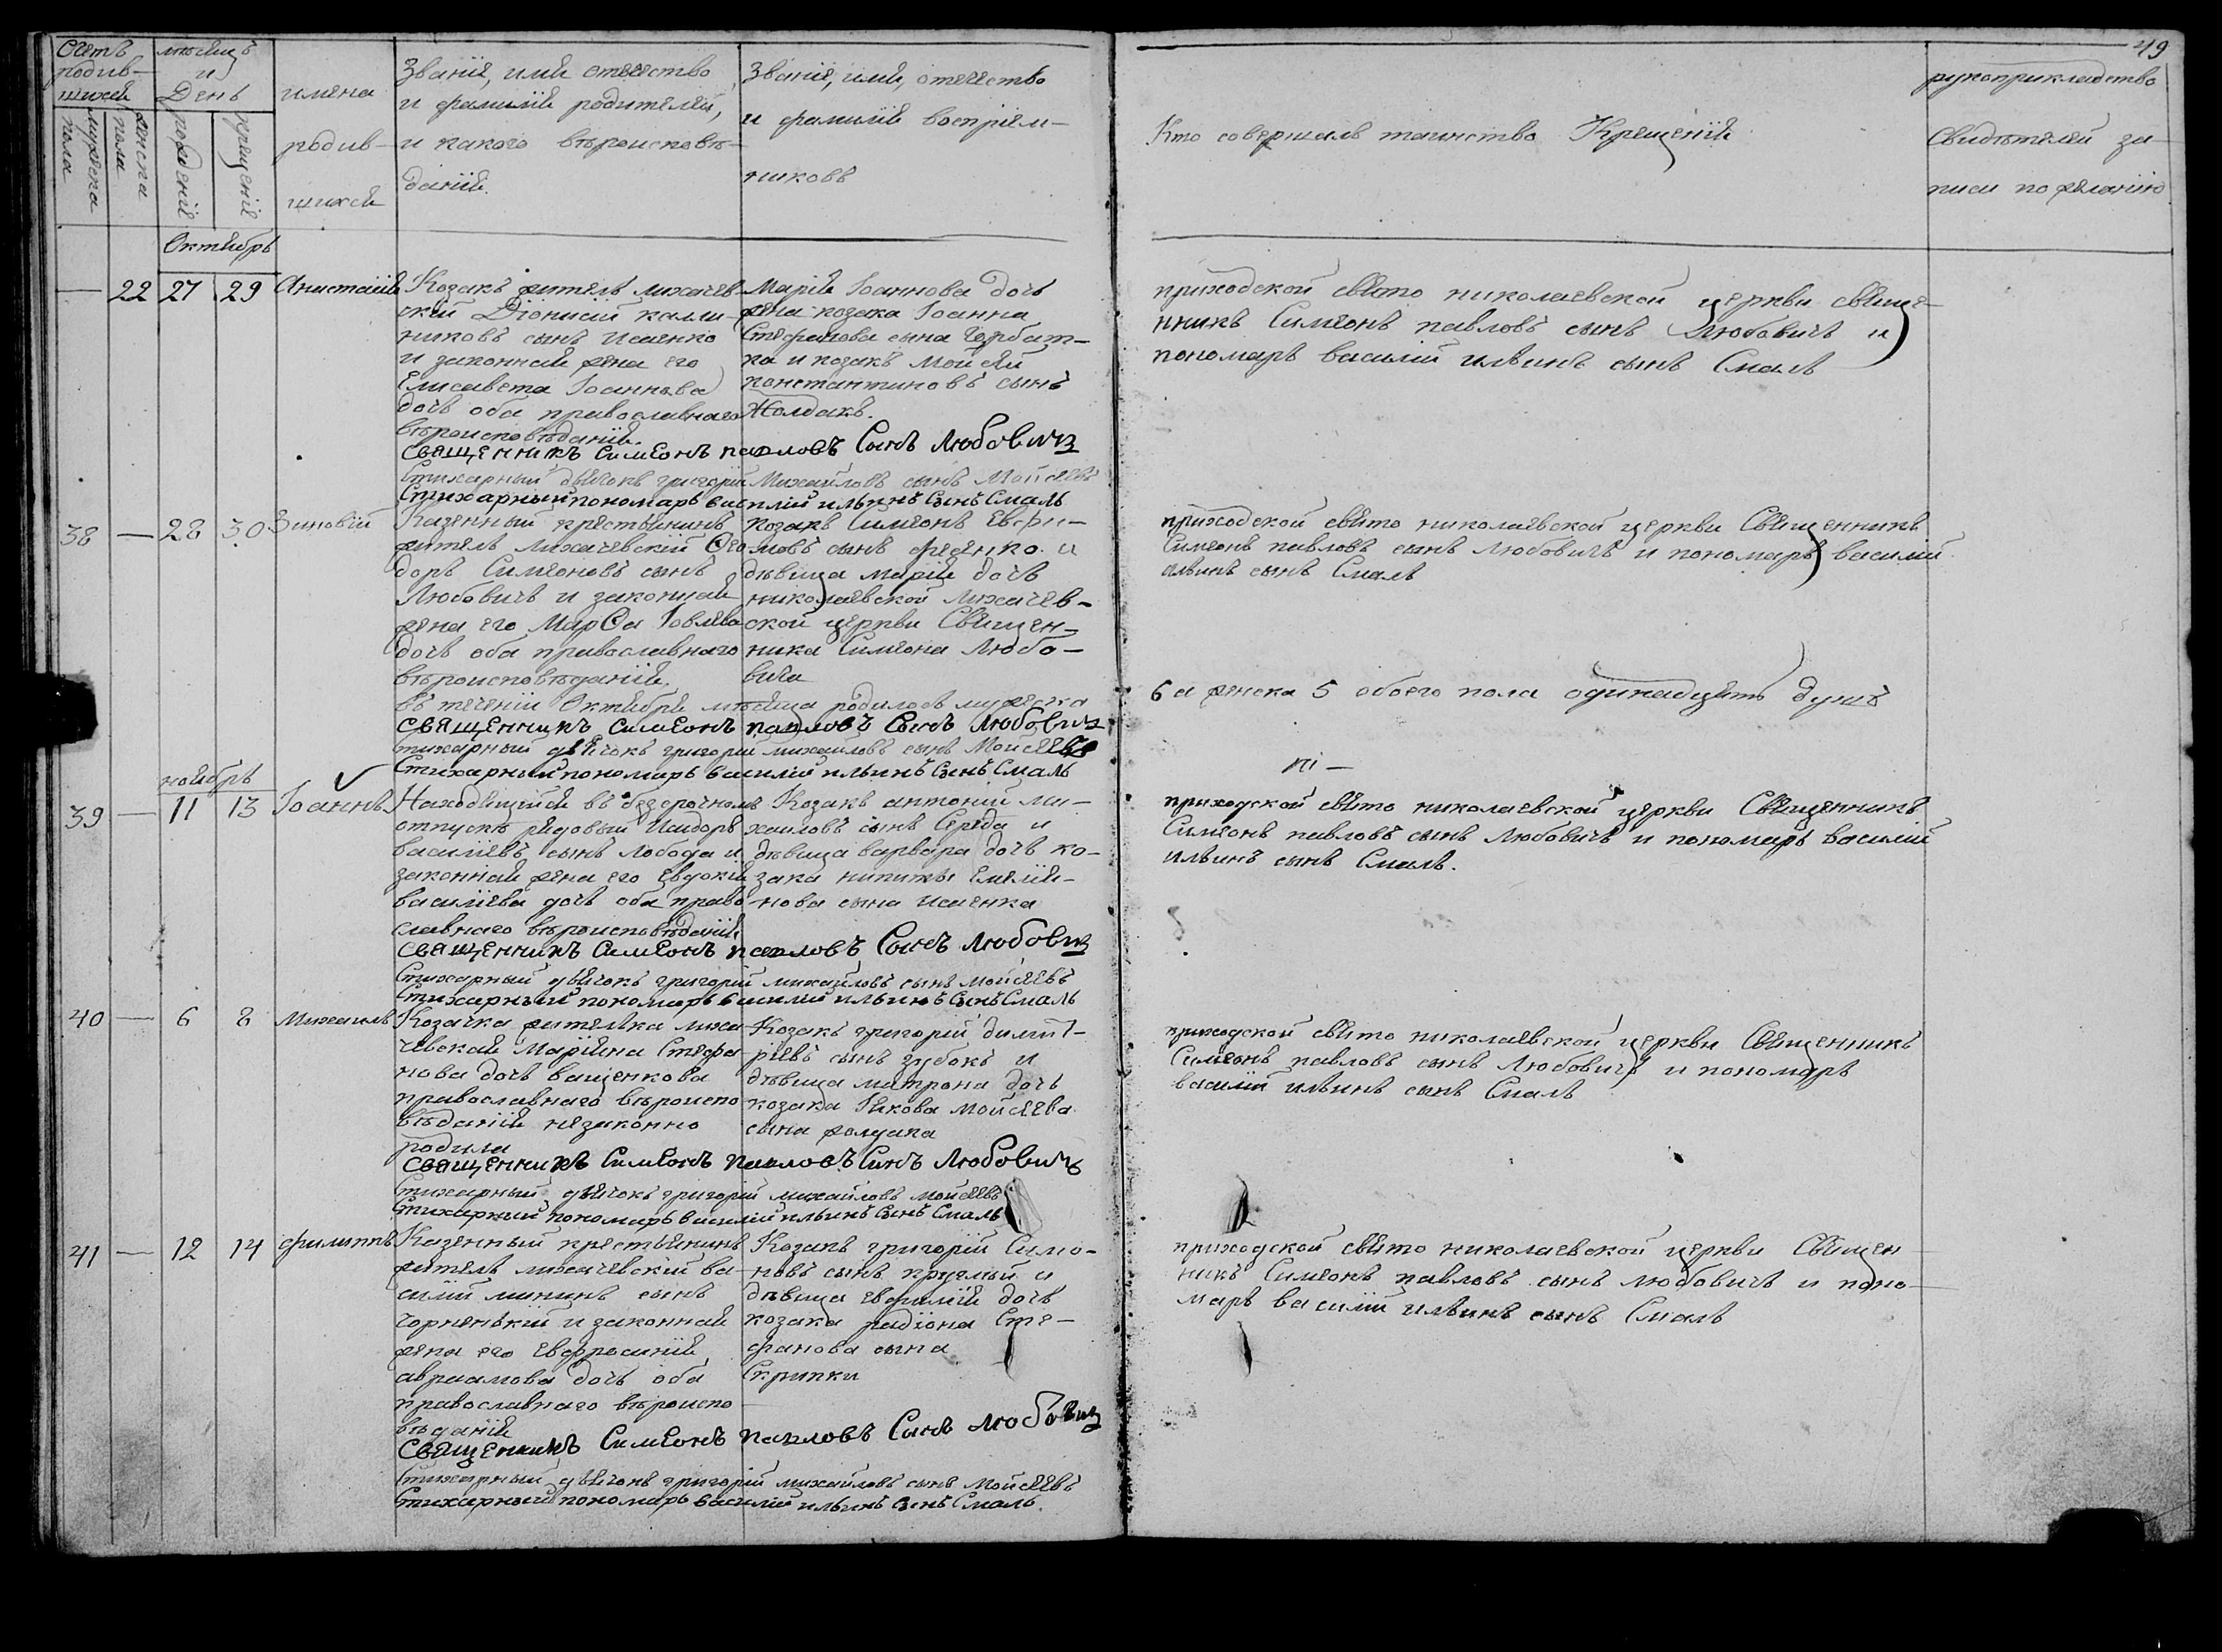 49
Счетъ
родив-
шихся
мужеска
пола
женска
пола
мѣсяцъ
и
День
рожденіе
крещеніе
имена
родив-
шихся
Званіе, имя отечество
и фамиліе родителей,
и какого вѣроисповѣ-
данія.
Званіе, имя, отечество
и фамиліе воспріем-
никовъ
Кто совершалъ таинство Крещенія
рукоприкладство
Свидѣтелей за-
писи по желанію
Октябрь
— 22 27 29 Анастасія
Козакъ житель лихачев-
скій Діонисій калли-
никовъ сынъ Исаенко
и законная жена его
Елисавета Іоаннова
дочь оба православнаго
вѣроисповѣданія.
Марія Іоаннова дочь
жена козака Іоанна
Стефанова сына Горбат-
ка и козакъ Мойсей
константиновъ сынъ
Жолдакъ.
приходской свято николаевской церкви свяще-
нникъ Симеонъ павловъ сынъ Любовичъ и
пономарь василій ильинъ сынъ Смаль
Священникъ Симеонъ павловъ Сынъ Любовичъ
Стихарный дьячокъ григорій Михайловъ сынъ Мойсеевъ
Стихарный пономарь василій ильинъ Сынъ Смаль
38 — 28 30 Зиновій
Казенный крестьянинъ
житель лихачевскій Ѳео-
доръ Симеоновъ сынъ
Любовичъ и законная
жена его Марѳа Іовлева
дочь оба православнаго
вѣроисповѣданія.
Козакъ Симеонъ Евфи-
мовъ сынъ Феденко и
дѣвица марія дочь
николаевской Лихачев-
ской церкви Священ-
ника Симеона Любо-
вича
приходской свято николаевской церкви Священникъ
Симеонъ павловъ сынъ Любовичъ и пономарь василій
ильинъ сынъ Смаль
въ теченіи Октября мѣсяца родилось мужеска 6 а женска 5 обоего пола одинадцать душъ
Священникъ Симеонъ павловъ Сынъ Любовичъ
стихарный дьячокъ григорій михайловъ сынъ Мойсеевъ
Стихарный пономарь василій ильинъ Сынъ Смаль
ноябрь
39 — 11 13 Іоаннъ
Находящійся въ безсрочномъ
отпускѣ рядовый Исидоръ
василіевъ сынъ Лобода и
законная жена его Евдокія
василіева дочь оба право-
славнаго вѣроисповѣданія
Козакъ антоній ми-
хаиловъ сынъ Середа и
дѣвица варвара дочь ко-
зака никиты Емелія-
нова сына Исаенка
приходской свято николаевской церкви Священникъ
Симеонъ павловъ сынъ Любовичъ и пономарь василій
ильинъ сынъ Смаль.
Священникъ Симеонъ павловъ Сынъ Любовичъ
Стихарный дьячокъ григорій михайловъ сынъ мойсеевъ
Стихарный пономарь василій ильинъ Сынъ Смаль
40 — 6 8 Михаилъ
Козачка жителька лиха-
чевская Маріяна Стефа-
нова дочь ващенкова
православнаго вѣроиспо-
вѣданія незаконно
родила
Козакъ григорій димит-
ріевъ сынъ зубокъ и
дѣвица матрона дочь
козака Іякова Мойсеева
сына жолдака
приходской свято николаевской церкви Священникъ
Симеонъ павловъ сынъ Любовичъ и пономарь
василій ильинъ сынъ Смаль
Священникъ Симеонъ павловъ Сынъ Любовичъ
Стихарный дьячокъ григорій михайловъ мойсеевъ
Стихарный пономарь василій ильинъ Сынъ Смаль
41 — 12 14 филиппъ
Казенный крестьянинъ
житель лихачевскій ва-
силій мининъ сынъ
чорненькій и законная
жена его Евфросинія
авраамова дочь оба
православнаго вѣроиспо-
вѣданія
Козакъ григорій Симо-
новъ сынъ круглый и
дѣвица евфимія дочь
козака радіона Сте-
фанова сына
Скрипки
приходской свято николаевской церкви Священ-
никъ Симеонъ павловъ сынъ любовичъ и поно-
марь василій ильинъ сынъ Смаль
Священникъ Симеонъ павловъ Сынъ Любовичъ
Стихарный дьячокъ григорій михайловъ сынъ Мойсеевъ
Стихарный пономарь василій ильинъ Сынъ Смаль.